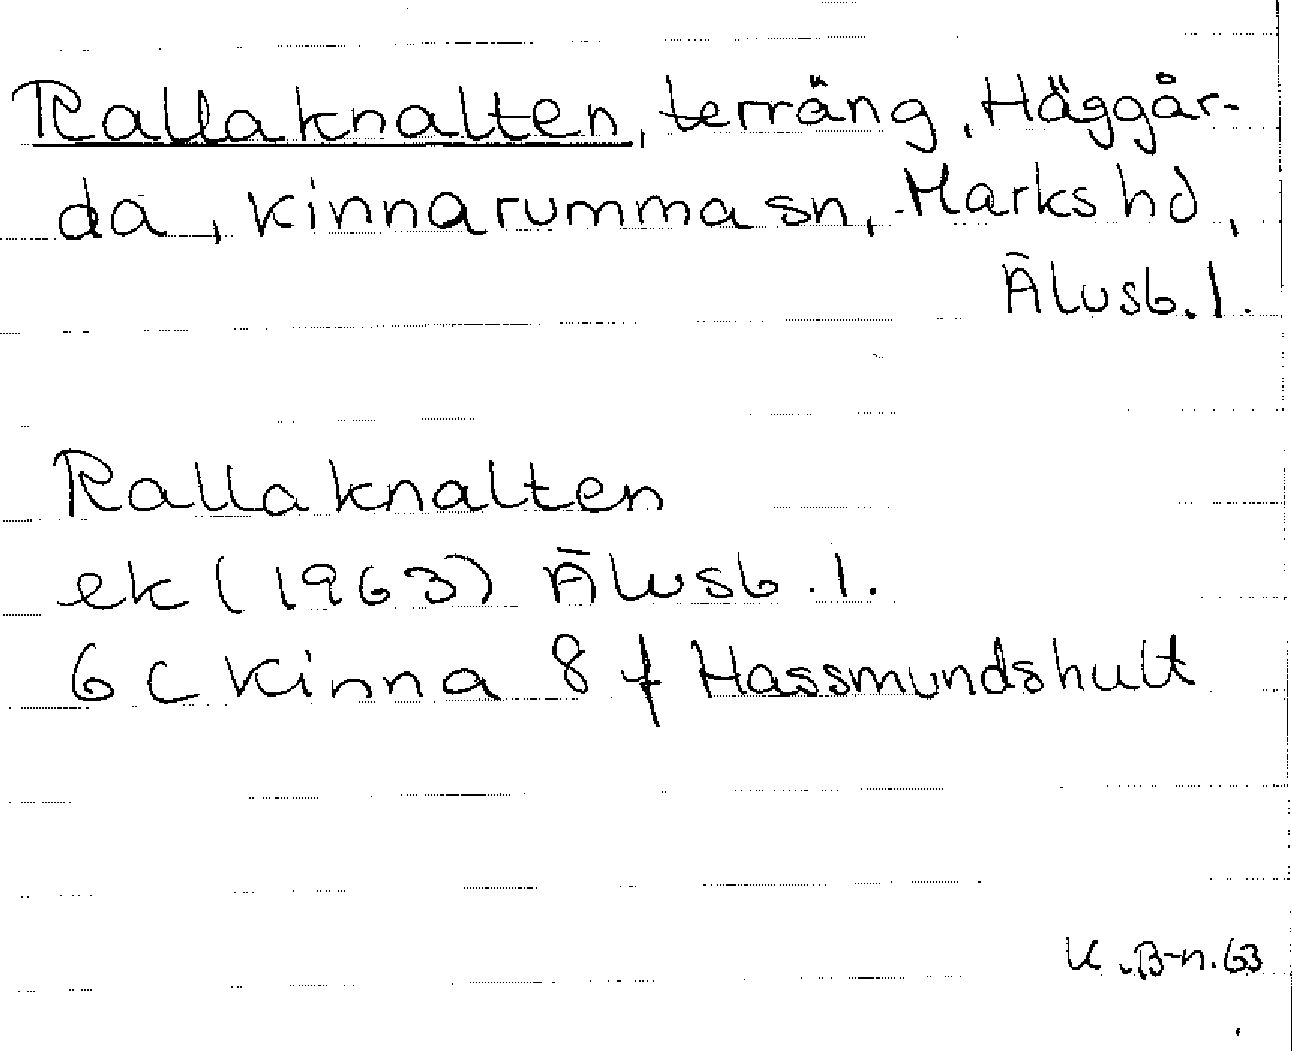 Rallaknalten, terräng, Häggår-
da, Kinnarumma sn, Marks hd,
Älvsb. l.
Rallaknalten
ek (1963) Älvsb. l.
6 C Kinna 8 f Hassmundshult
K.B-n. 63